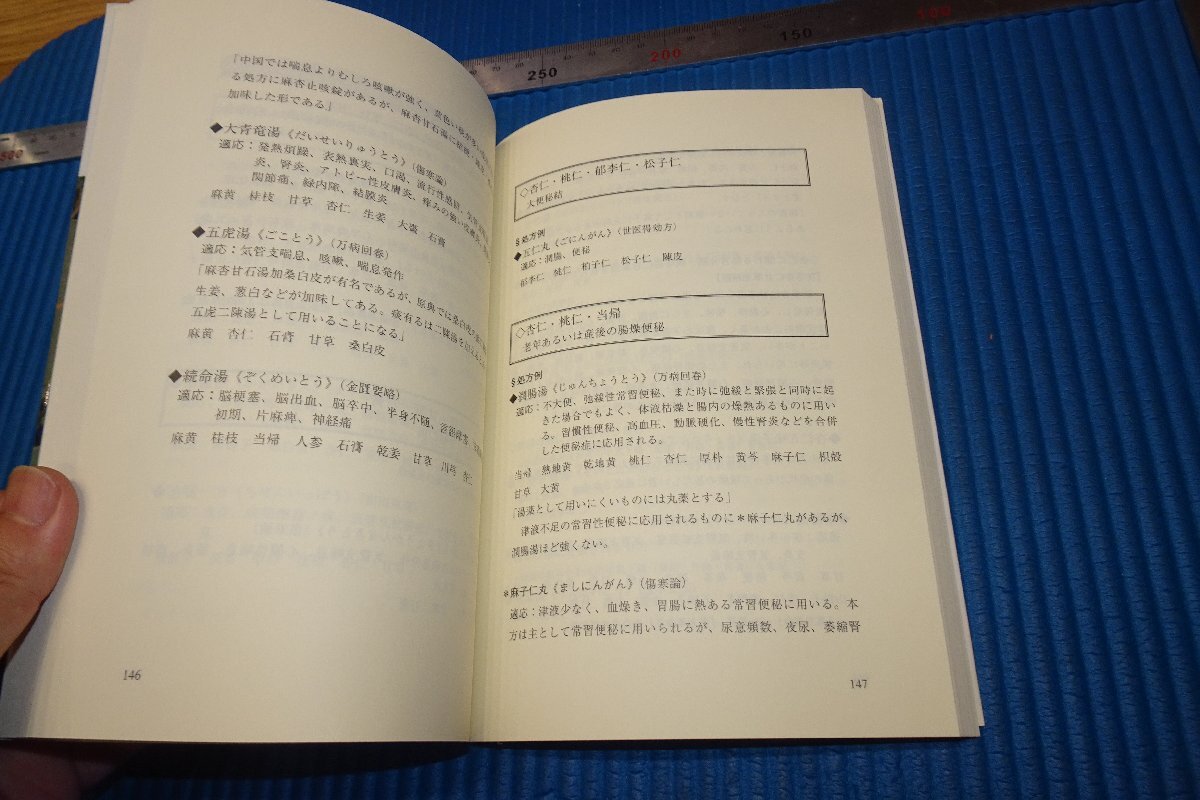 「中国では喘息よりむしろ咳嗽が強く、黄色い
る処方に麻杏止咳錠があるが、麻杏甘石湯に
加味した形である」
◆大青竜湯《だいせいりゅうとう》(傷寒論)
適応：発熱煩躁、表熱裏実、口渇、流行性感冒、
炎、腎炎、アトピー性皮膚炎、痒みの強い
関節痛、緑内障、結膜炎
麻黄 桂枝 甘草 杏仁 生姜 大棗 石膏
◆五虎湯《ごことう》(万病回春)
適応：気管支喘息、咳嗽、喘息発作
「麻杏甘石湯加桑白皮が有名であるが、原典では桑白皮
生姜、葱白などが加味してある。痰有るは二陳湯を
五虎二陳湯として用いることになる」
麻黄 杏仁 石膏 甘草 桑白皮
◆続命湯《ぞくめいとう》(金匱要略)
適応：脳梗塞、脳出血、脳卒中、半身不随、言語障害、
初期、片麻痺、神経痛
麻黄 桂枝 当帰 人参 石膏 乾姜 甘草 川芎 杏仁
146
◇杏仁・桃仁・郁李仁・松子仁
大便秘結
§処方例
◆五仁丸《ごにんがん》(世医得効方)
適応：潤腸、便秘
郁李仁 桃仁 柏子仁 松子仁 陳皮
◇杏仁・桃仁・当帰
老年あるいは産後の腸燥便秘
§処方例
◆潤腸湯《じゅんちょうとう》(万病回春)
適応：不大便、弛緩性常習便秘、また時に弛緩と緊張と同時に起
きた場合でもよく、体液枯燥と腸内の燥熱あるものに用い
る。習慣性便秘、高血圧、動脈硬化、慢性腎炎などを合併
した便秘症に応用される。
当帰 熟地黄 乾地黄 桃仁 杏仁 厚朴 黄芩 麻子仁 枳殻
甘草 大黄
「湯薬として用いにくいものには丸薬とする」
津液不足の常習性便秘に応用されるものに＊麻子仁丸があるが、
潤腸湯ほど強くない。
＊麻子仁丸《ましにんがん》(傷寒論)
適応：津液少なく、血燥き、胃腸に熱ある常習便秘に用いる。本
方は主として常習便秘に用いられるが、尿意頻数、夜尿、萎縮腎
147
250
200
150
100
500